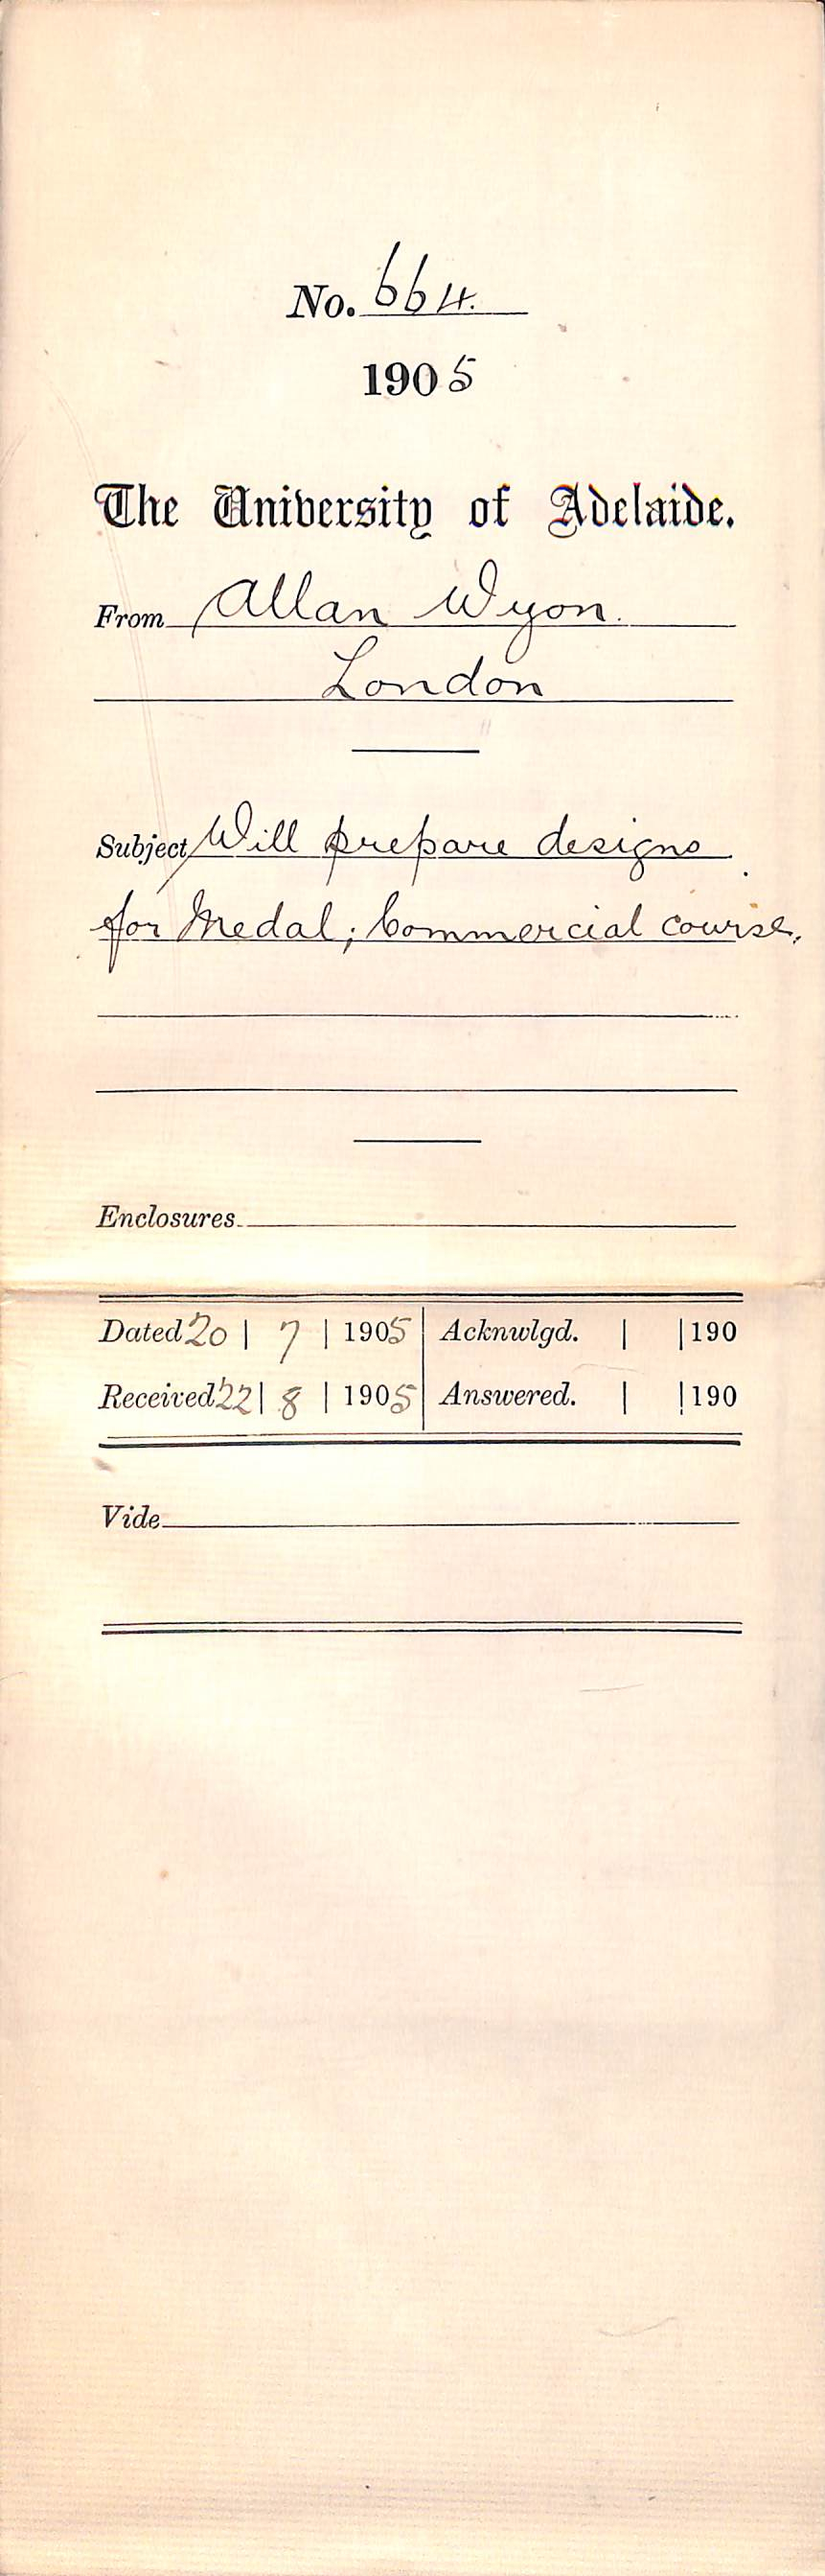 No. 664.
1905
The University of Adelaide.
From Allan Wyon.
London
Subject Will prepare designs
for Medal; Commercial course.
Enclosures
Dated 20 | 7 | 1905 | Acknwlgd. | | 190
Received 22 | 8 | 1905 | Answered. | | 190
Vide